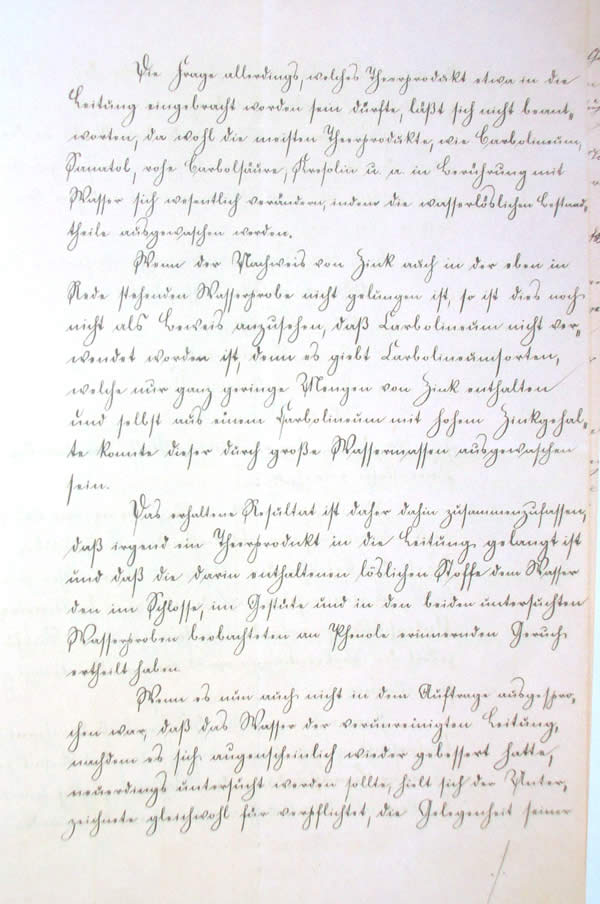 Die Frage allerdings, welches Theerprodukt etwa in die
Leitung eingebracht worden sein dürfte, läßt sich nicht beant-
worten, da wohl die meisten Theerprodukte, wie Carbolineum,
Sanatol, rohe Carbolsäure, Kresolin u. a. in Berührung mit
Wasser sich wesentlich verändern, indem die wasserlöslichen Bestand-
theile ausgewaschen werden.
Wenn der Nachweis von Zink auch in der eben in
Rede stehenden Wasserprobe nicht gelungen ist, so ist dies noch
nicht als Beweis anzusehen, daß Carbolineum nicht ver-
wendet worden ist, denn es giebt Carbolineumsorten,
welche nur ganz geringe Mengen von Zink enthalten
und selbst aus einem Carbolineum mit hohem Zinkgehal-
te konnte dieser durch große Wassermassen ausgewaschen
sein.
Das erhaltene Resultat ist daher dahin zusammenzufassen,
daß irgend ein Theerprodukt in die Leitung gelangt ist
und daß die darin enthaltenen löslichen Stoffe dem Wasser
den im Schlosse, im Gestüte und in den beiden untersuchten
Wasserproben beobachteten an Phenole erinnernden Geruch
ertheilt haben
Wenn es nun auch nicht in dem Auftrage ausgespro-
chen war, daß das Wasser der verunreinigten Leitung,
nachdem es sich augenscheinlich wieder gebessert hatte,
neuerdings untersucht werden sollte, hielt sich der Unter-
zeichnete gleichwohl für verpflichtet, die Gelegenheit seiner